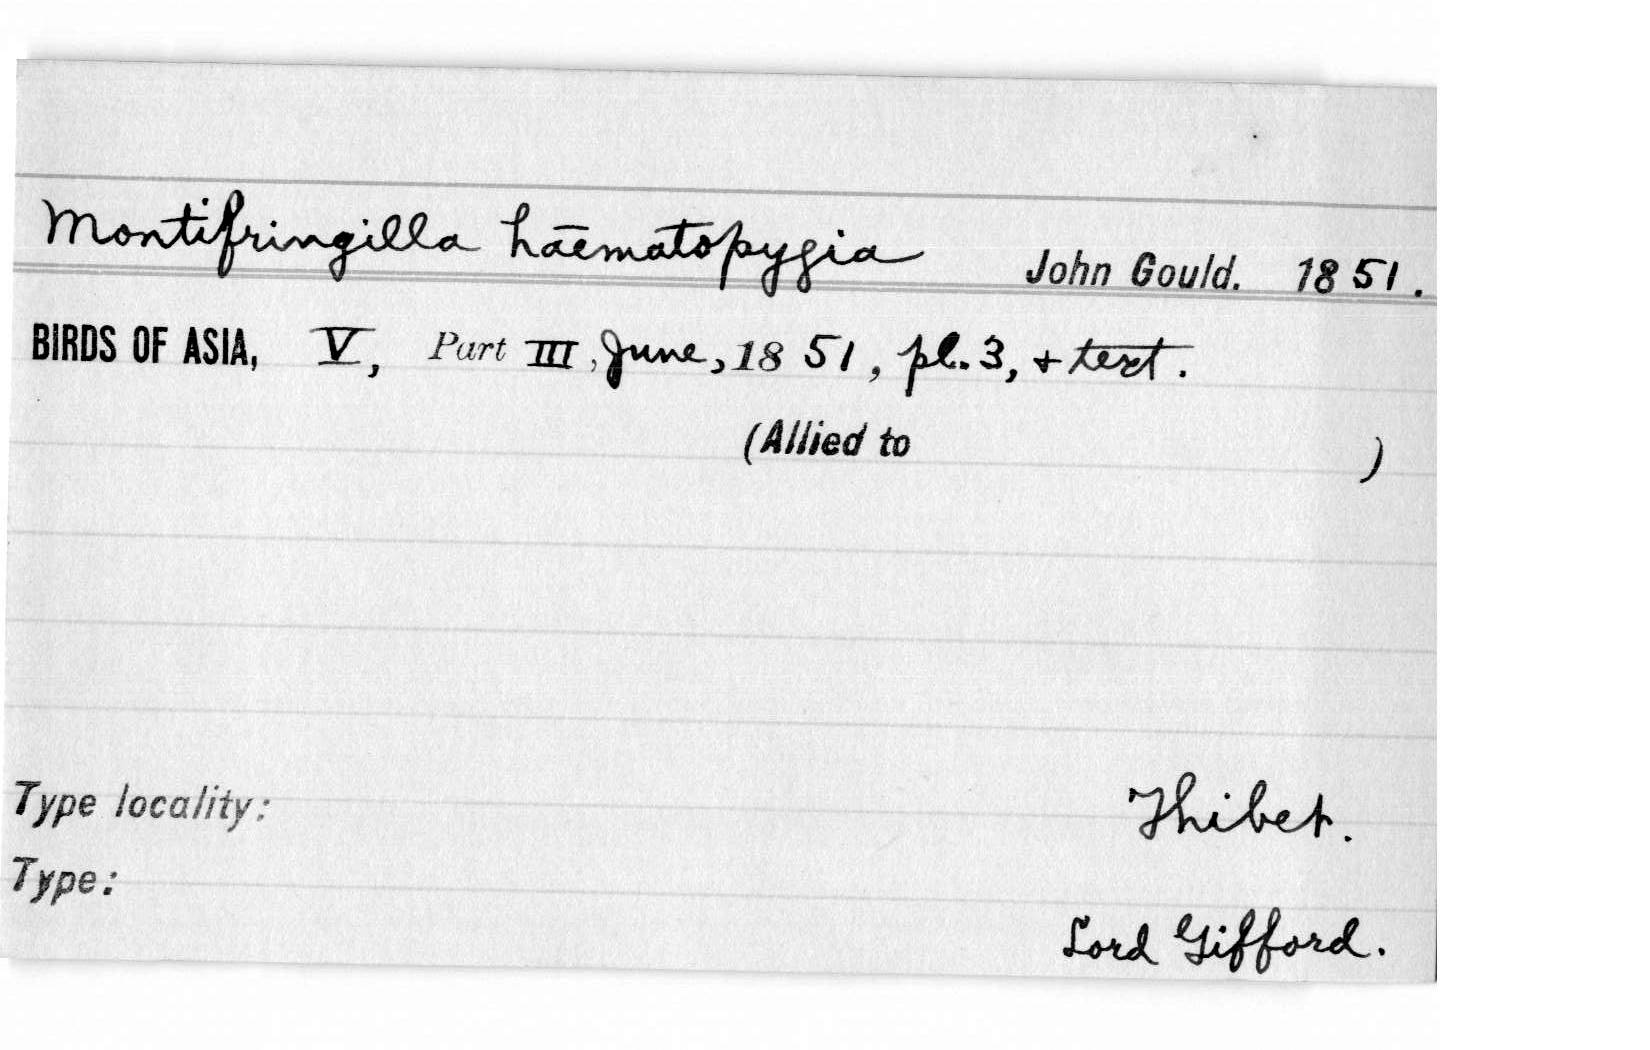 Montifringilla haematopygia John Gould. 1851.
BIRDS OF ASIA, V, Part III, June, 1851, pl. 3, + text.
(Allied to )
Type locality: Thibet.
Type:
Lord Gifford.